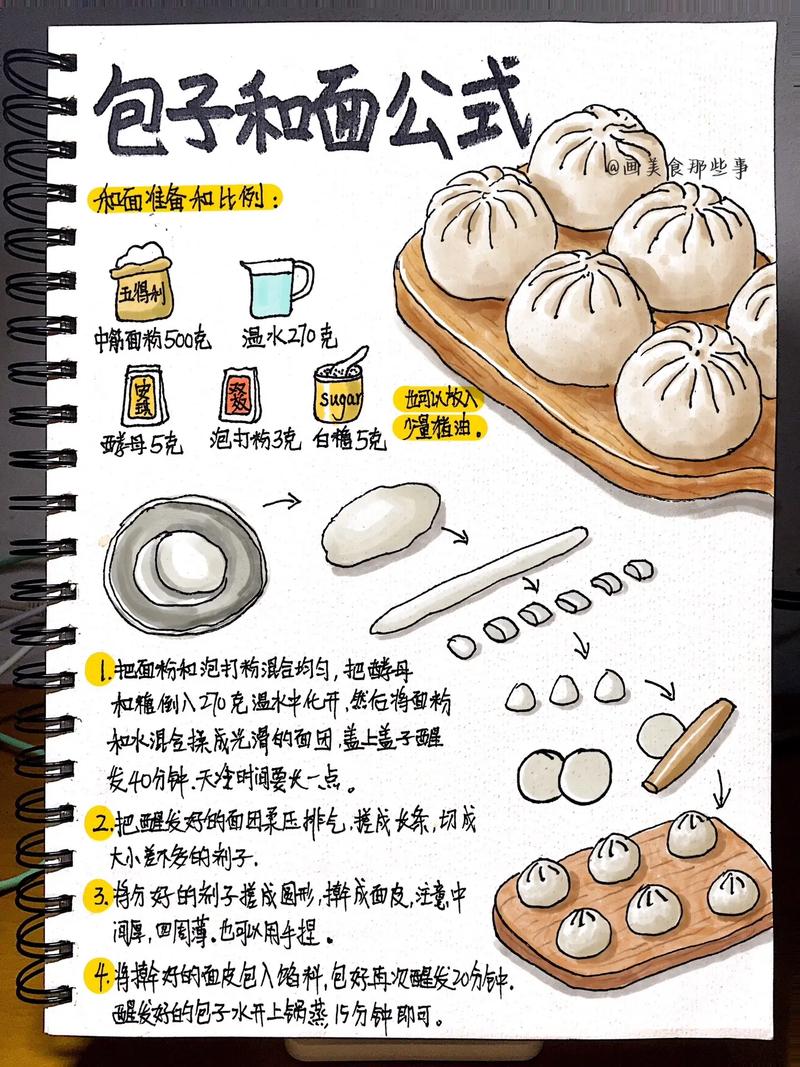 包子和面公式
@画美食那些事
和面准备和比例：
五得利
中筋面粉500克
温水270克
安琪
双效
sugar
酵母5克
泡打粉3克
白糖5克
也可以放入
少量猪油。
1.把面粉和泡打粉混合均匀，把酵母
和糖倒入270克温水中化开，然后将面粉
和水混合揉成光滑的面团，盖上盖子醒
发40分钟.天冷时间要长一点。
2.把醒发好的面团柔压排气，搓成长条，切成
大小差不多的剂子.
3.将分好的剂子搓成圆形，擀成面皮，注意中
间厚，四周薄.也可以用手捏。
4.将擀好的面皮包入馅料，包好再次醒发20分钟.
醒发好的包子水开上锅蒸，15分钟即可。